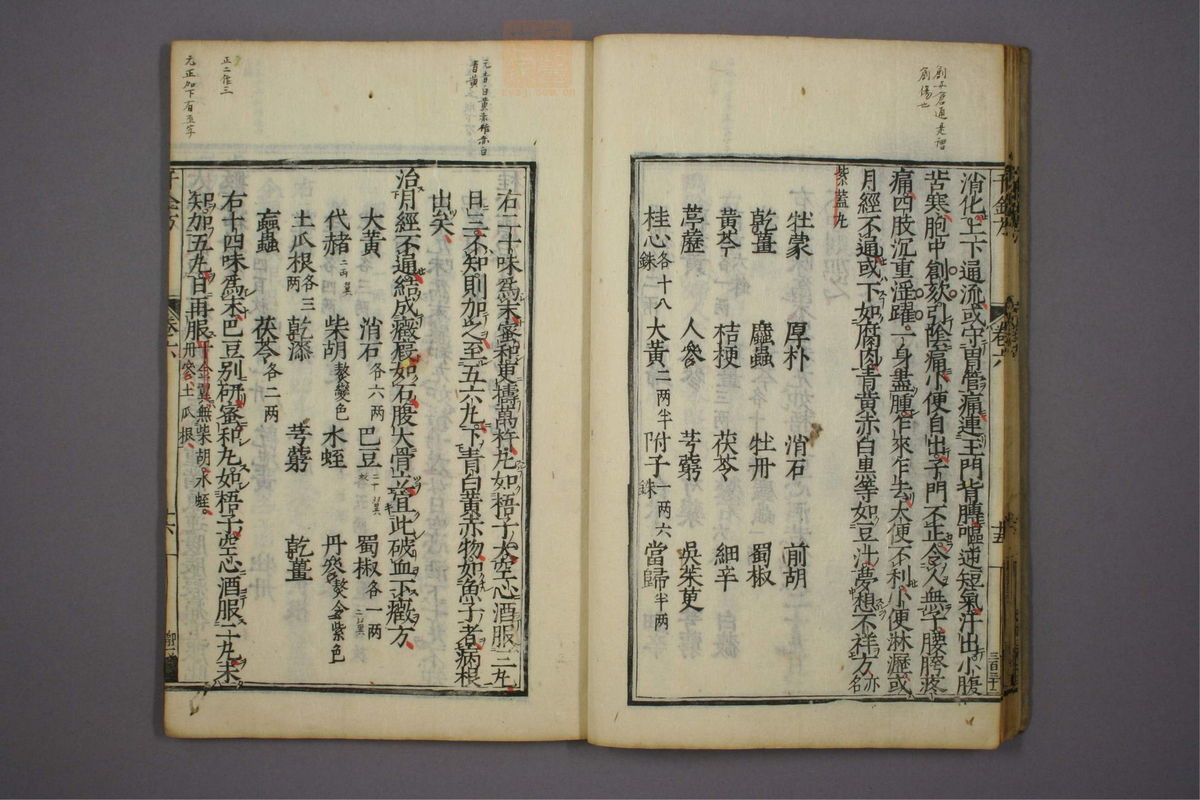 消化上下通流或守胃管痛連玉門背膊嘔逆短氣汗出少腹
苦寒胞中創欬引陰痛小便自出子門不正令人無子腰胯疼
痛四肢沉重淫躍一身盡腫乍來乍去大便不利小便淋瀝或
月經不通或下如腐肉青黃赤白黑等如豆汁夢想不祥方亦名
紫蓋丸
牡蒙 厚朴 消石 前胡
乾薑 䗪蟲 牡丹 蜀椒
黃芩 桔梗 茯苓 細辛
葶藶 人參 芎藭 吳茱萸
桂心各十八銖 大黃二兩半 附子一兩六銖 當歸半兩
右二十味爲末蜜和更擣萬杵丸如梧子大空心酒服三丸
日三不知則加之至五六丸下青白黃赤物如魚子者病根
出矣
治月經不通結成癥瘕如石腹大骨立宜此破血下癥方
大黃 消石各六兩 巴豆 蜀椒各一兩
代赭 柴胡熬變色 水蛭 丹參熬令紫色
土瓜根各三兩 乾漆 芎藭 乾薑
䗪蟲 茯苓各二兩
右十四味爲末巴豆別研蜜和丸如梧子空心酒服二丸未
知加五丸日再服千金翼無柴胡水蛭丹參土瓜根
千金方
卷六